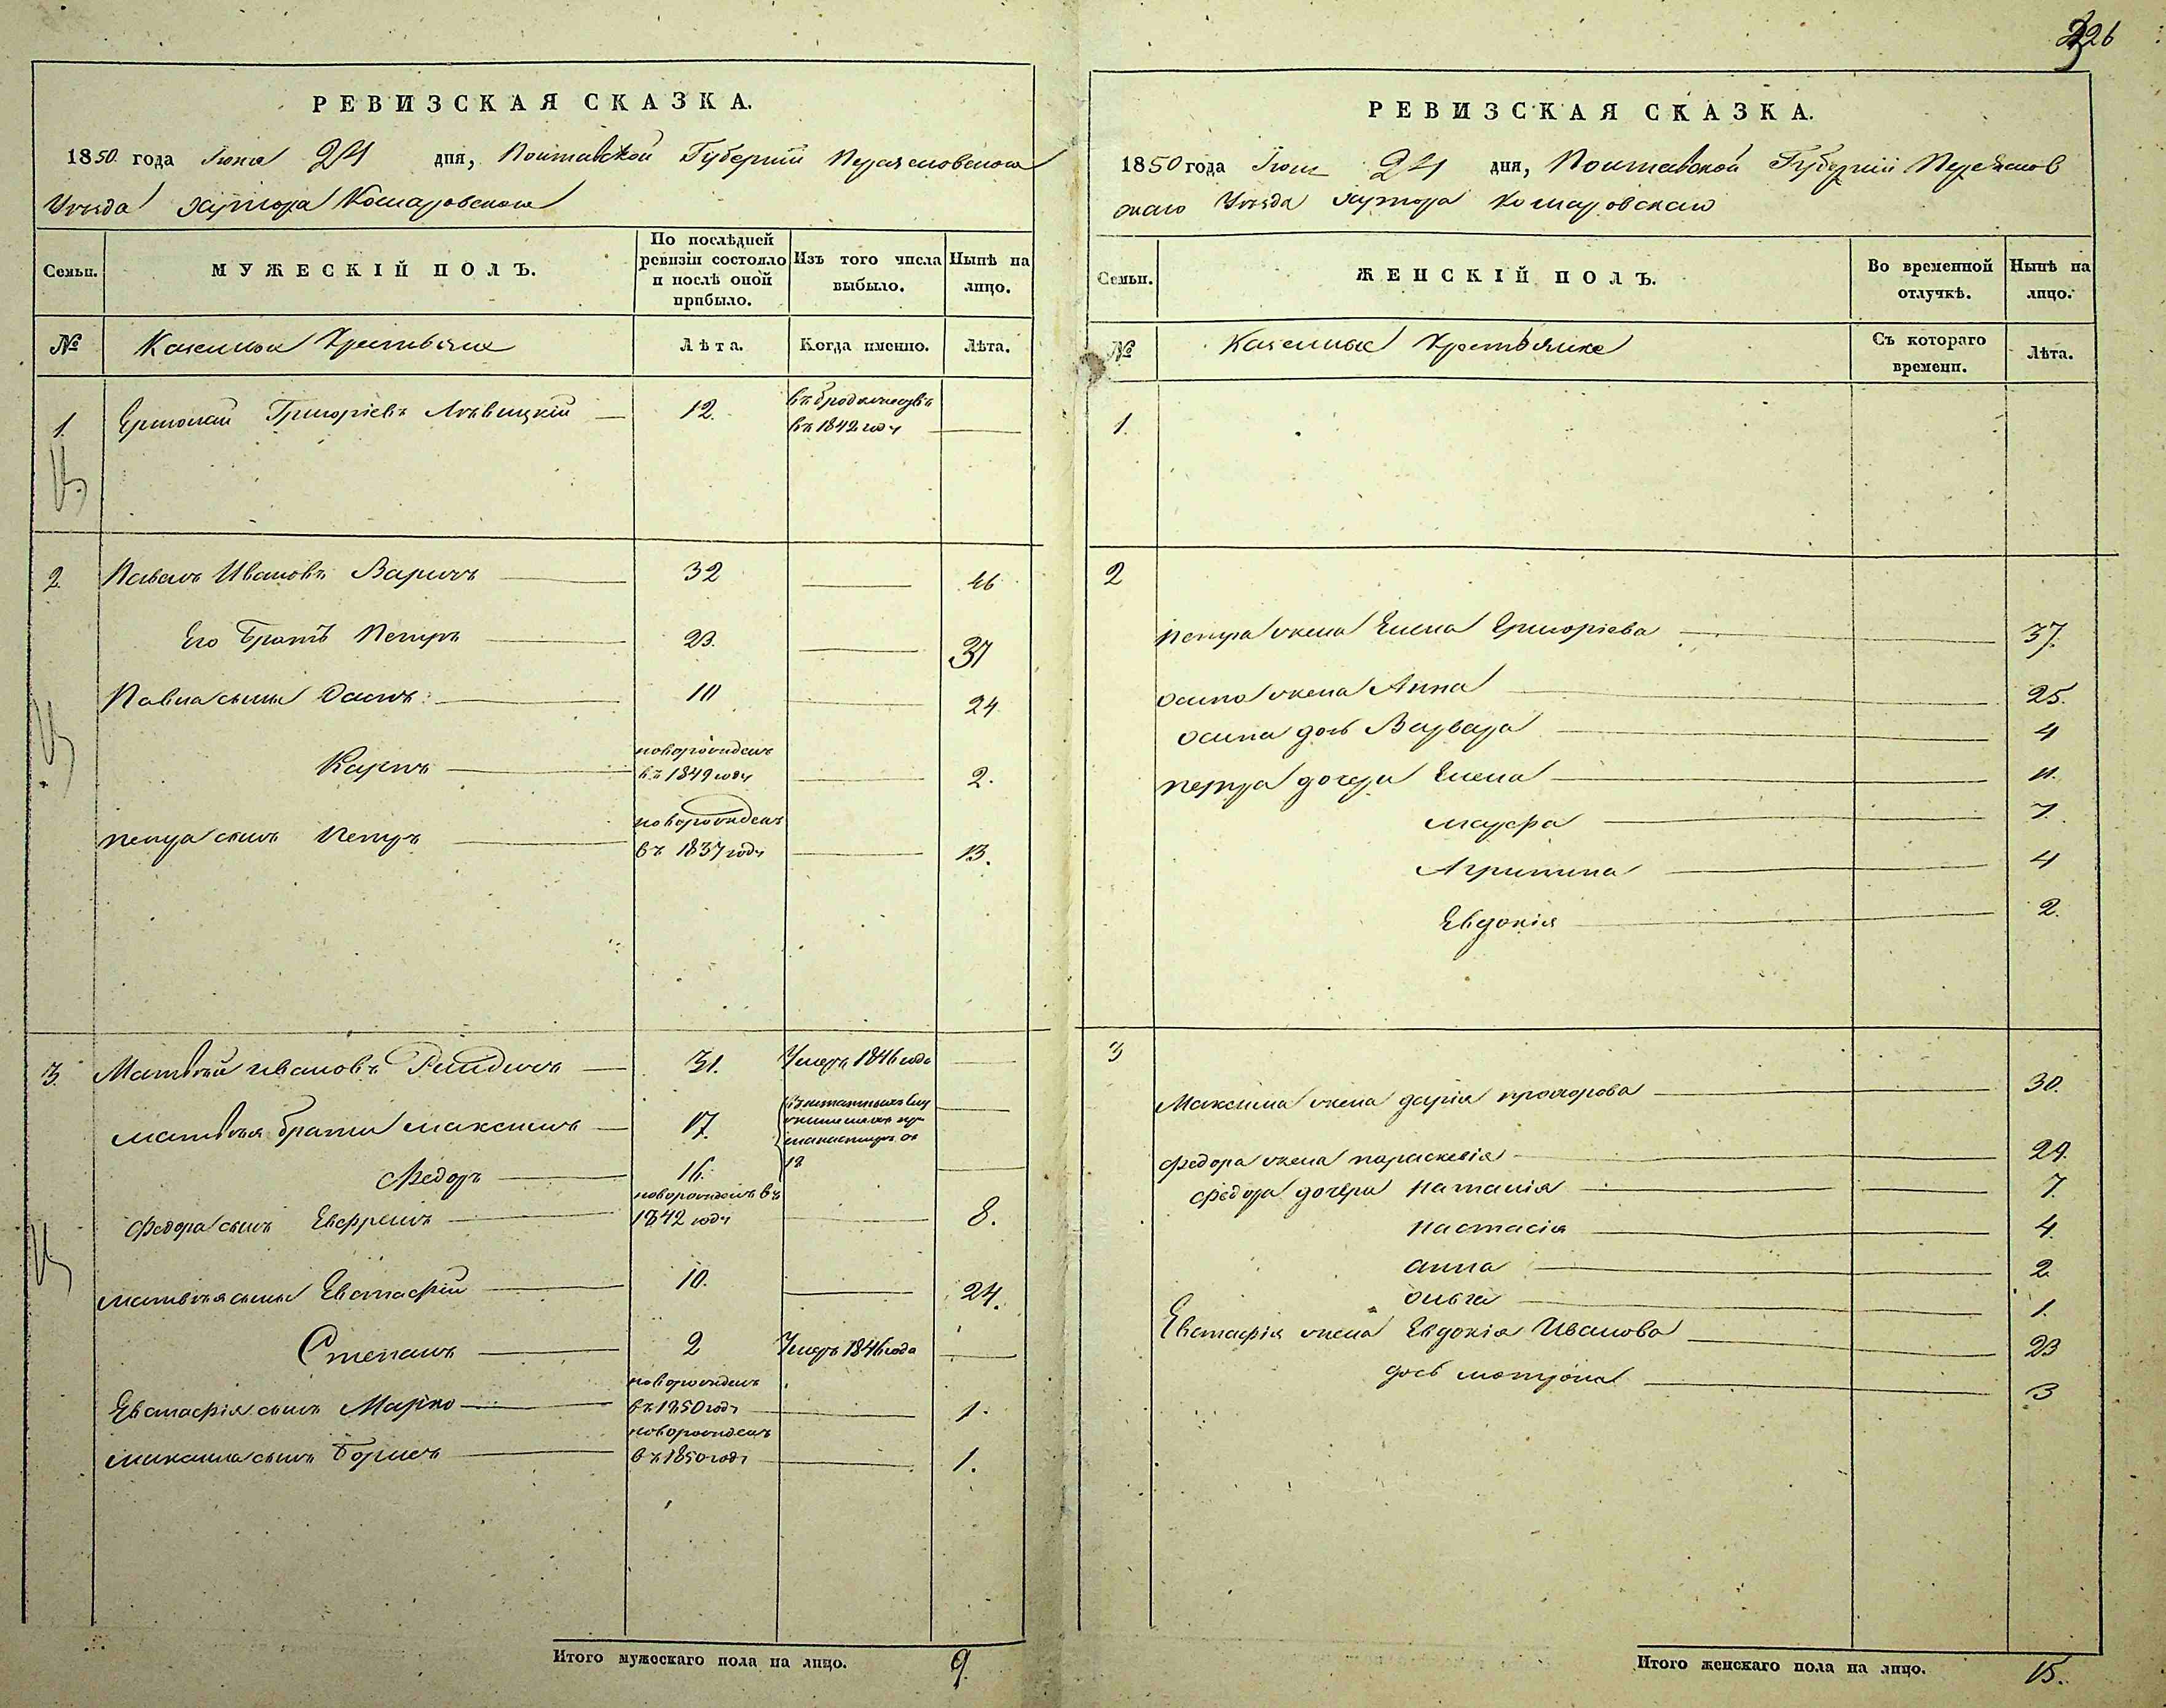 326
РЕВИЗСКАЯ СКАЗКА.
1850 года Июня 24 дня, Полтавской Губернии Переясловского
Уезда хутора Комаровского
Семьи. МУЖЕСКІЙ ПОЛЪ. По послѣдней ревизіи состояло и послѣ оной прибыло. Изъ того числа выбыло. Нынѣ на лицо.
№ Казенные Крестьяне Лѣта. Когда именно. Лѣта.
1. Григоріевъ 12. въ 1842 году
2 Павелъ Ивановъ 32 46
Его Братъ Петръ 23. 37
Павла сыны Осипъ 10 24
Карпъ новорожденъ въ 1849 году 2.
Петра сынъ Петръ новорожденъ въ 1837 году 13.
3. Матвѣй Ивановъ 31. Умеръ 1846 года
Матвѣя братья Максимъ 17.
Федоръ 16.
Федора сынъ Евфремъ новорожденъ въ 1842 году 8.
Матвѣя сыны Евстафій 10. 24.
Степанъ 2 Умеръ 1846 года
Евстафія сынъ Марко новорожденъ въ 1850 году 1.
Максима сынъ Борисъ новорожденъ въ 1850 году 1.
Итого мужескаго пола на лицо. 9
РЕВИЗСКАЯ СКАЗКА.
1850 года Июня 24 дня, Полтавской Губерніи Переяслов
скаго Уезда хутора Комаровскаго
Семьи. ЖЕНСКІЙ ПОЛЪ. Во временной отлучкѣ. Нынѣ на лицо.
№ Казенные Крестьянке Съ котораго времени. Лѣта.
1.
2
Петра жена Елена Григоріева 37.
Осипа жена Анна 25.
Осипа дочь Варвара 4
Петра дочери Елена 11.
Мауфа 7.
Агрипина 4
Евдокія 2.
3
Максима жена Дарія Прохорова 30.
Федора жена Параскевія 29.
Федора дочери Наталія 7.
Настасія 4.
Анна 2
Ольга 1.
Евстафія жена Евдокія Иванова 23
дочь Мотрона 3
Итого женскаго пола на лицо. 15.